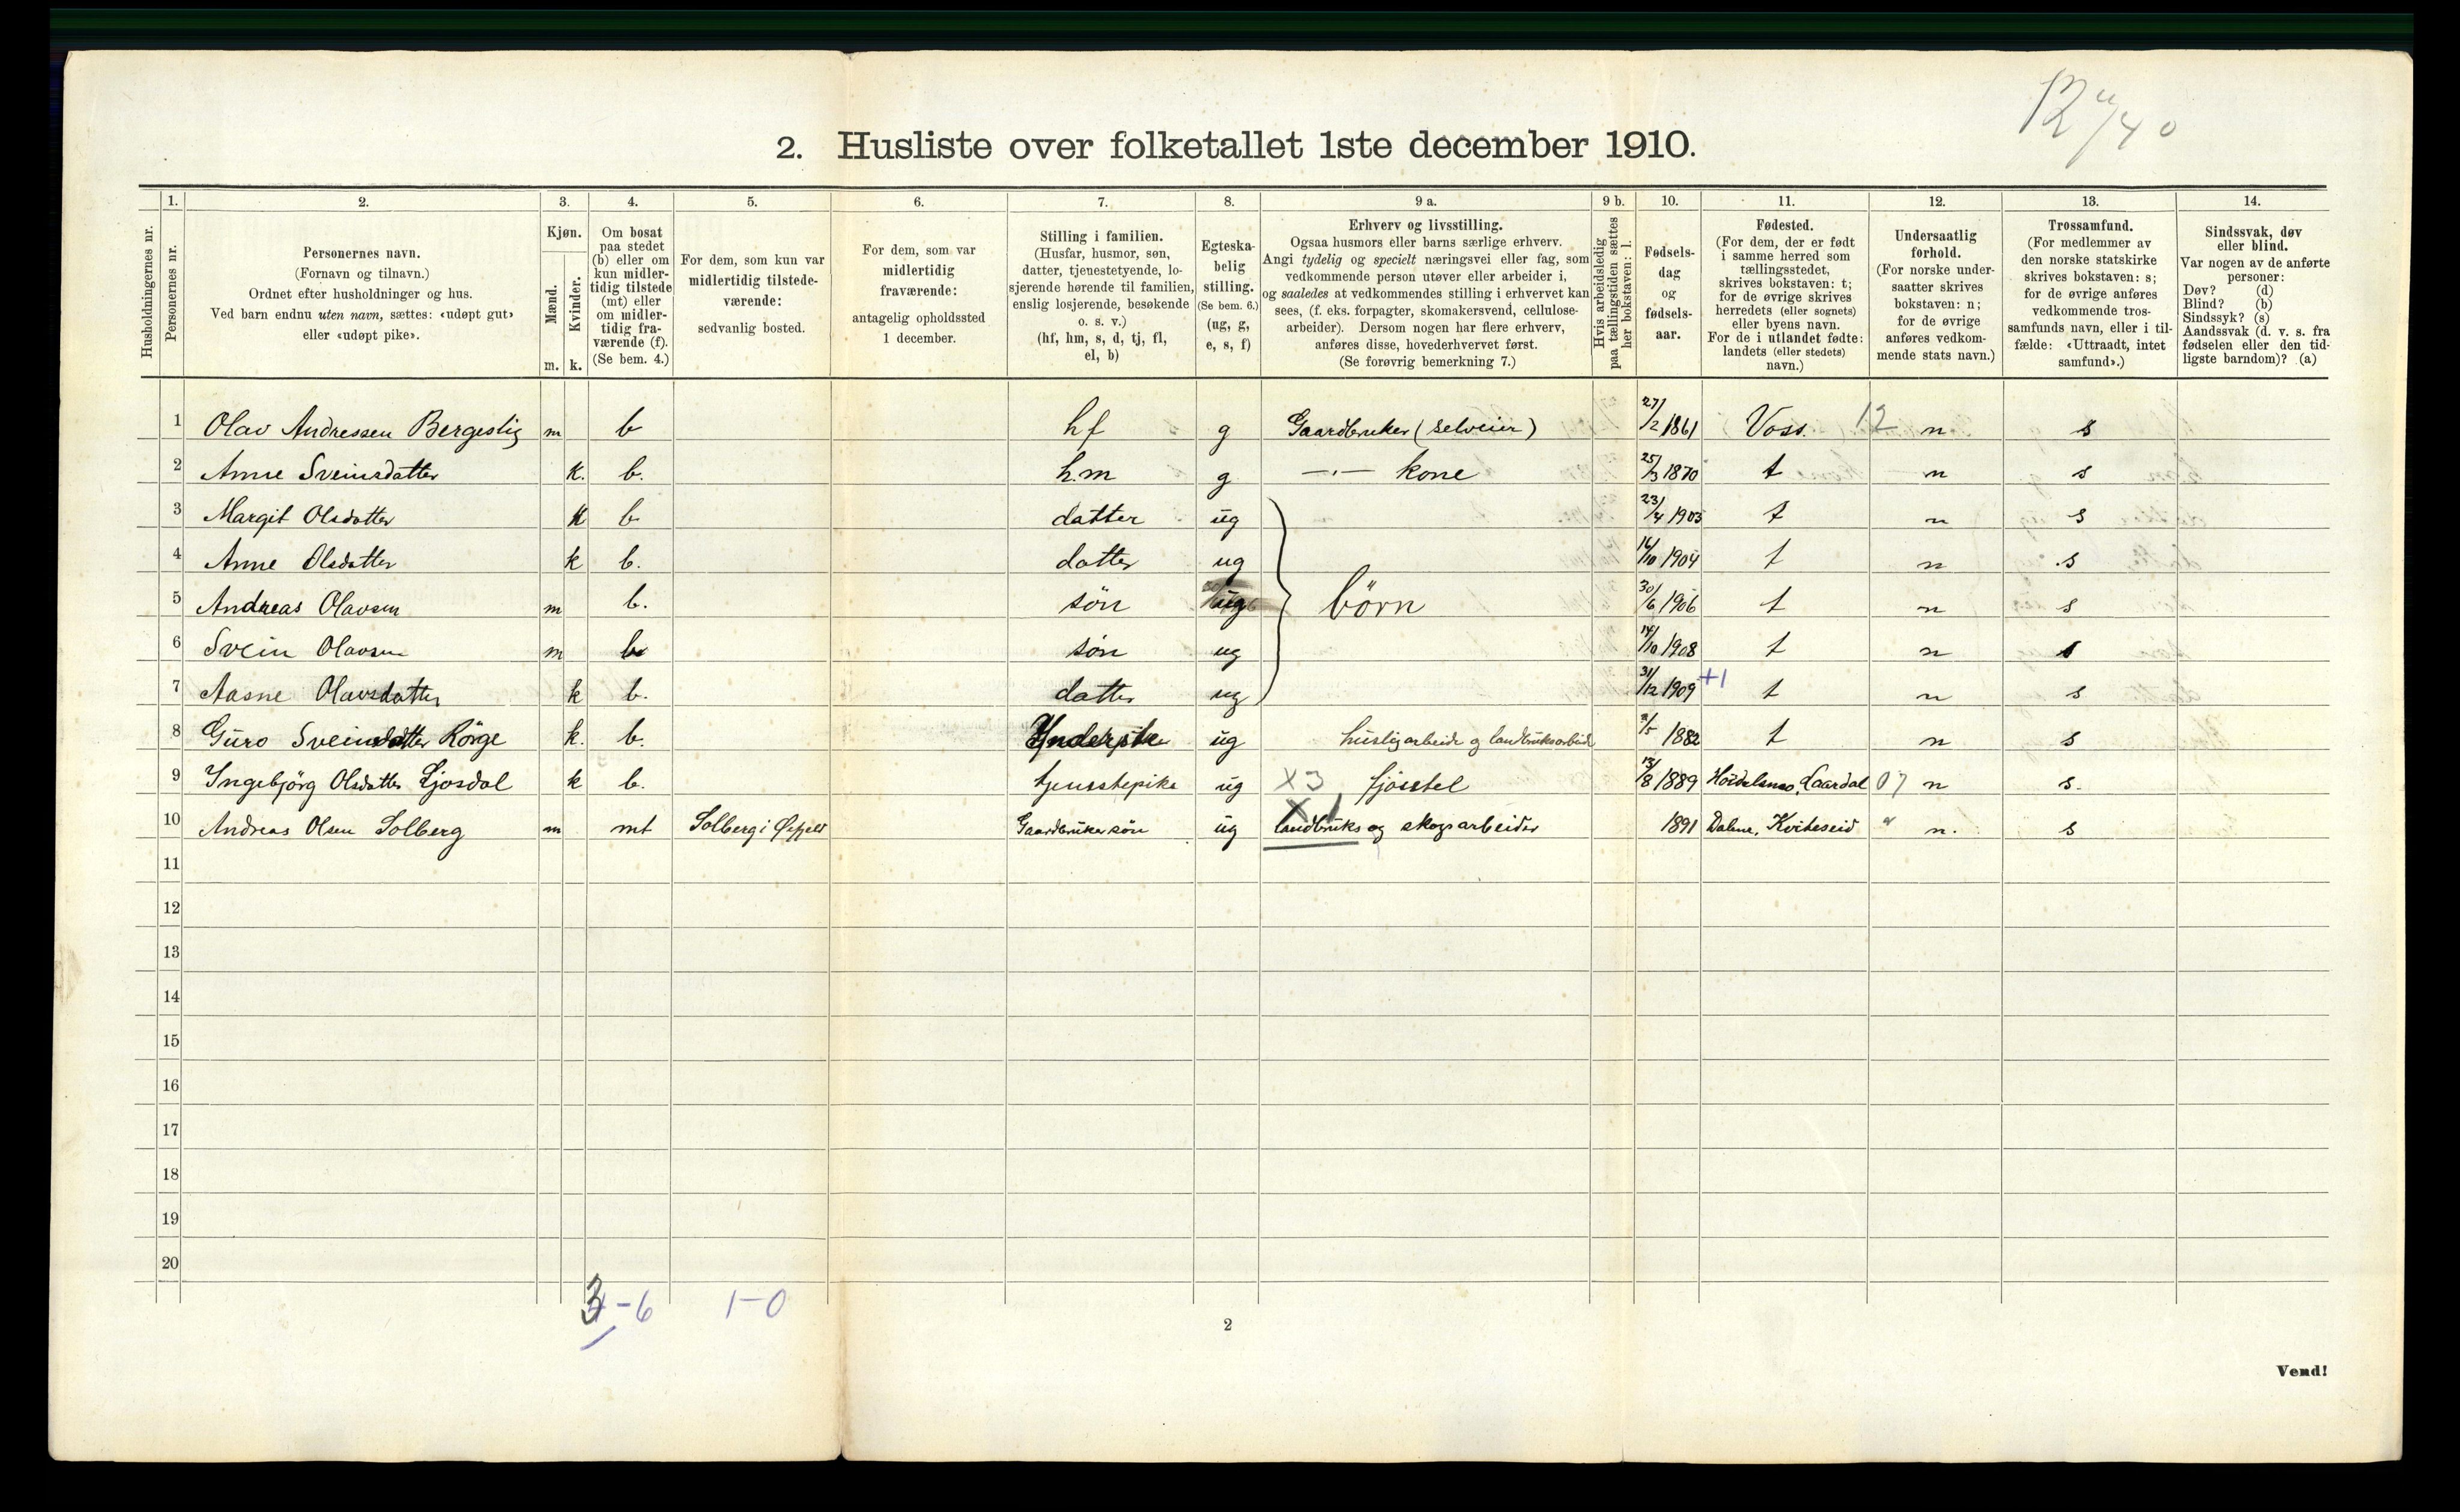 12 4/4 0
2. Husliste over folketallet 1ste december 1910.
Husholdningernes nr.
1.
Personernes nr.
2.
Personernes navn.
(Fornavn og tilnavn.)
Ordnet efter husholdninger og hus.
Ved barn endnu uten navn, sættes: «udøpt gut»
eller «udøpt pike».
3.
Kjøn.
Mænd.
Kvinder.
m. k.
4.
Om bosat
paa stedet
(b) eller om
kun midler-
tidig tilstede
(mt) eller
om midler-
tidig fra-
værende (f).
(Se bem. 4.)
5.
For dem, som kun var
midlertidig tilstede-
værende:
sedvanlig bosted.
6.
For dem, som var
midlertidig
fraværende:
antagelig opholdssted
1 december.
7.
Stilling i familien.
(Husfar, husmor, søn,
datter, tjenestetyende, lo-
sjerende hørende til familien,
enslig losjerende, besøkende
o. s. v.)
(hf, hm, s, d, tj, fl,
el, b)
8.
Egteska-
belig
stilling.
(Se bem. 6.)
(ug, g,
e, s, f)
9 a.
Erhverv og livsstilling.
Ogsaa husmors eller barns særlige erhverv.
Angi tydelig og specielt næringsvei eller fag, som
vedkommende person utøver eller arbeider i,
og saaledes at vedkommendes stilling i erhvervet kan
sees, (f. eks. forpagter, skomakersvend, cellulose-
arbeider). Dersom nogen har flere erhverv,
anføres disse, hovederhvervet først.
(Se forøvrig bemerkning 7.)
9 b.
Hvis arbeidsledig
paa tællingstiden sættes
her bokstaven: l.
10.
Fødsels-
dag
og
fødsels-
aar.
11.
Fødested.
(For dem, der er født
i samme herred som
tællingsstedet,
skrives bokstaven: t;
for de øvrige skrives
herredets (eller sognets)
eller byens navn.
For de i utlandet fødte:
landets (eller stedets)
navn.)
12.
Undersaatlig
forhold.
(For norske under-
saatter skrives
bokstaven: n;
for de øvrige
anføres vedkom-
mende stats navn.)
13.
Trossamfund.
(For medlemmer av
den norske statskirke
skrives bokstaven: s;
for de øvrige anføres
vedkommende tros-
samfunds navn, eller i til-
fælde: «Uttraadt, intet
samfund».)
14.
Sindssvak, døv
eller blind.
Var nogen av de anførte
personer:
Døv? (d)
Blind? (b)
Sindssyk? (s)
Aandssvak (d. v. s. fra
fødselen eller den tid-
ligste barndom)? (a)
1 Olav Andressen Bergeslig m b hf g Gaardbruker (selveier) 27/2 1861 Voss. 12 n s
2 Anne Sveinsdatter k. b. h.m g —"— kone 25/3 1870 t n s
3 Margit Olsdatter k b datter ug 23/4 1903 t n s
4 Anne Olsdatter k b. datter ug 16/10 1904 t n s
5 Andreas Olavsen m b. sön ug börn 30/6 1906 t n s
6 Svein Olavsen m b sön ug 14/10 1908 t n s
7 Aasne Olavsdatter k b. datter ug 31/12 1909 +1 t n s
8 Guro Sveinsdatter Rörge k. b. ug huslig arbeide og landbruksarbeide /5 1882 t n s
9 Ingebjörg Olsdatter Ljosdal k b. tjenestepike ug X3 fjösstel 13/8 1889 Hoidalsmo, Laardal 07 n s.
10 Andreas Olsen Solberg m mt Solberg i Gaardbruker sön ug X1 landbruks og skogsarbeider 1891 Dalane, Kviteseid " n. s
11
12
13
14
15
16
17
18
19
20
3-6 1-0
2
Vend!